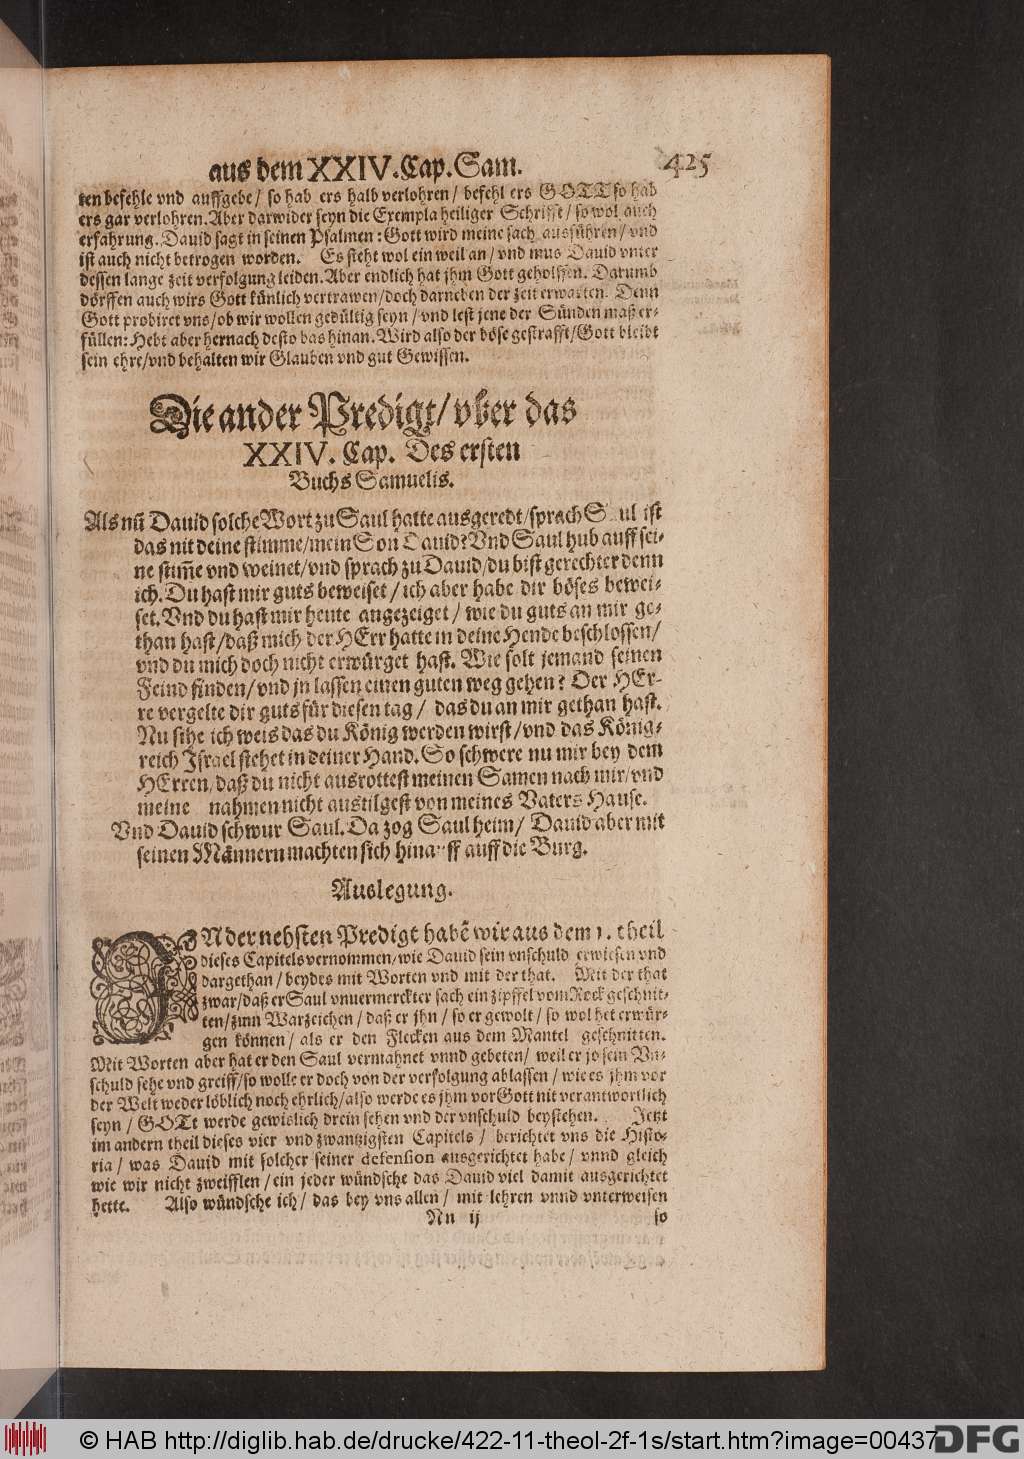 aus dem XXIV. Cap. Sam. 425
ten befehle vnd auffgebe / so hab ers halb verlohren / befehl ers GOTT so hab
ers gar verlohren. Aber darwider seyn die Exempla heiliger Schrifft / so wol auch
erfahrung. Dauid sagt in seinen Psalmen: Gott wird meine sach ausführen / vnd
ist auch nicht betrogen worden. Es steht wol ein weil an / vnd mus Dauid vnter
dessen lange zeit verfolgung leiden. Aber endlich hat jhm Gott geholffen. Darumb
dörffen auch wirs Gott künlich vertrawen / doch darneben der zeit erwarten. Denn
Gott probiret vns / ob wir wollen gedültig seyn / vnd lest jene der Sünden maß er-
füllen: Hebt aber hernach desto bas hinan. Wird also der böse gestrafft / Gott bleibt
sein ehre / vnd behalten wir Glauben vnd gut Gewissen.
Die ander Predigt / vber das
XXIV. Cap. Des ersten
Buchs Samuelis.
Als nū Dauid solche Wort zu Saul hatte ausgeredt / sprach Saul ist
das nit deine stimme / mein Son Dauid? Vnd Saul hub auff sei-
ne stim̄e vnd weinet / vnd sprach zu Dauid / du bist gerechter denn
ich. Du hast mir guts beweiset / ich aber habe dir böses bewei-
set. Vnd du hast mir heute angezeiget / wie du guts an mir ge-
than hast / daß mich der HErr hatte in deine Hende beschlossen /
vnd du mich doch nicht erwürget hast. Wie solt jemand seinen
Feind finden / vnd jn lassen einen guten weg gehen? Der HEr-
re vergelte dir guts für diesen tag / das du an mir gethan hast.
Nu sihe ich weis das du König werden wirst / vnd das König-
reich Israel stehet in deiner Hand. So schwere nu mir bey dem
HErren, daß du nicht ausrottest meinen Samen nach mir / vnd
meine nahmen nicht austilgest von meines Vaters Hause.
Vnd Dauid schwur Saul. Da zog Saul heim / Dauid aber mit
seinen Männern machten sich hinauff auff die Burg.
Auslegung.
IN der nehsten Predigt habē wir aus dem 1. theil
dieses Capitels vernommen / wie Dauid sein vnschuld erwiesen vnd
dargethan / beydes mit Worten vnd mit der that. Mit der that
zwar / daß er Saul vnuermerckter sach ein zipffel vom Rock geschnit-
ten / zum Warzeichen / daß er jhn / so er gewolt / so wol het erwür-
gen können / als er den Flecken aus dem Mantel geschnitten.
Mit Worten aber hat er den Saul vermahnet vnnd gebeten / weil er jo sein Vn-
schuld sehe vnd greiff / so wolle er doch von der verfolgung ablassen / wie es jhm vor
der Welt weder löblich noch ehrlich / also werde es jhm vor Gott nit verantwortlich
seyn / GOTt werde gewislich drein sehen vnd der vnschuld beystehen. Jetzt
im andern theil dieses vier vnd zwantzigsten Capitels / berichtet vns die Histo-
ria / was Dauid mit solcher seiner defension ausgerichtet habe / vnnd gleich
wie wir nicht zweifflen / ein jeder wündsche das Dauid viel damit ausgerichtet
hette. Also wündsche ich / das bey vns allen / mit lehren vnnd vnterweisen
Nn ij so
© HAB http://diglib.hab.de/drucke/422-11-theol-2f-1s/start.htm?image=00437
DFG